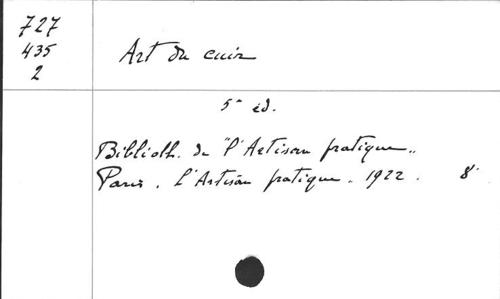 727
435
2
Art du cuir
5e éd.
Biblioth. de "l'Artisan pratique„
Paris. L'Artisan pratique. 1922. 8°